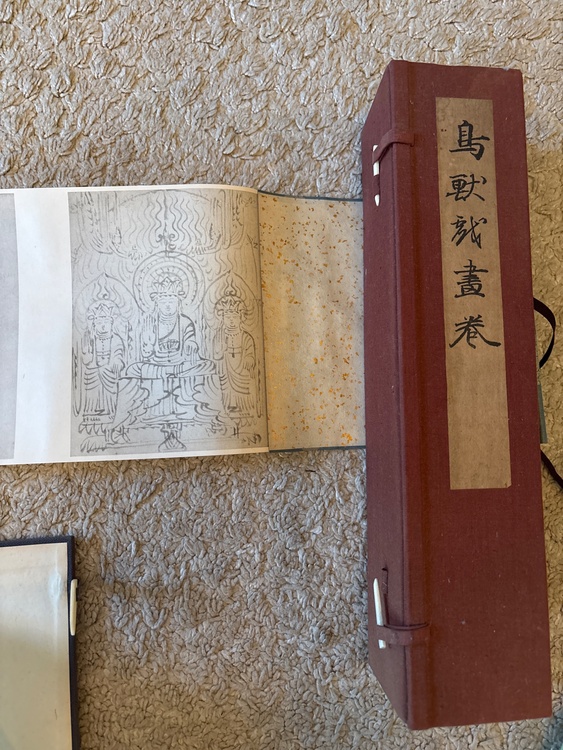 鳥獣戯畫巻